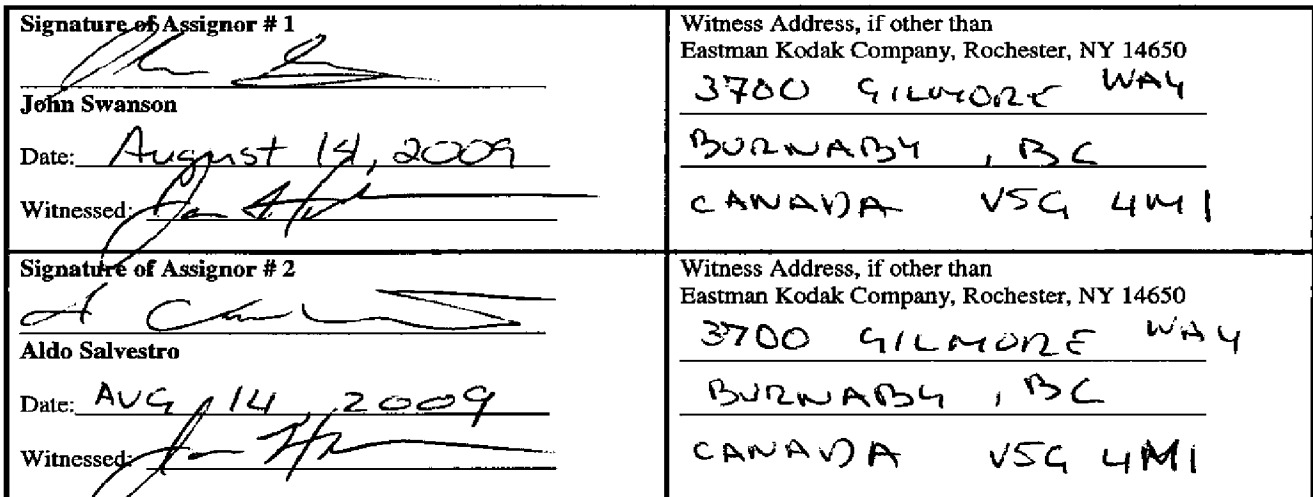 Signature of Assignor # 1
John Swanson
Date: August 14, 2009
Witnessed:
Witness Address, if other than
Eastman Kodak Company, Rochester, NY 14650
3700 GILMORE WAY
BURNABY, BC
CANADA V5G 4M1
Signature of Assignor # 2
Aldo Salvestro
Date: AUG 14, 2009
Witnessed:
Witness Address, if other than
Eastman Kodak Company, Rochester, NY 14650
3700 GILMORE WAY
BURNABY, BC
CANADA V5G 4M1